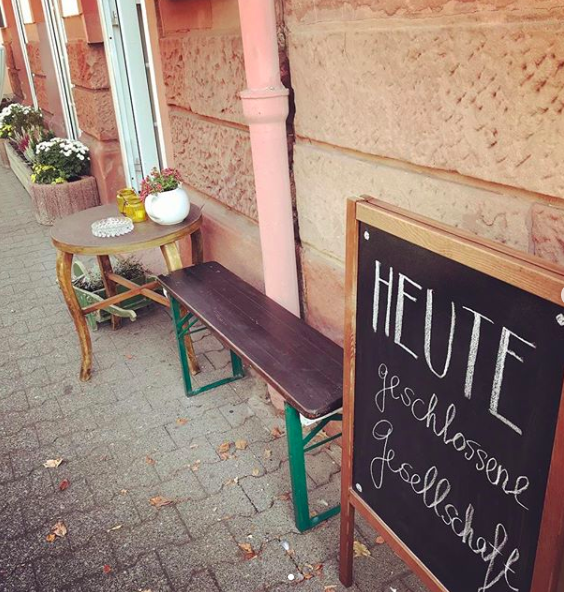 HEUTE
geschlossene
gesellschaft